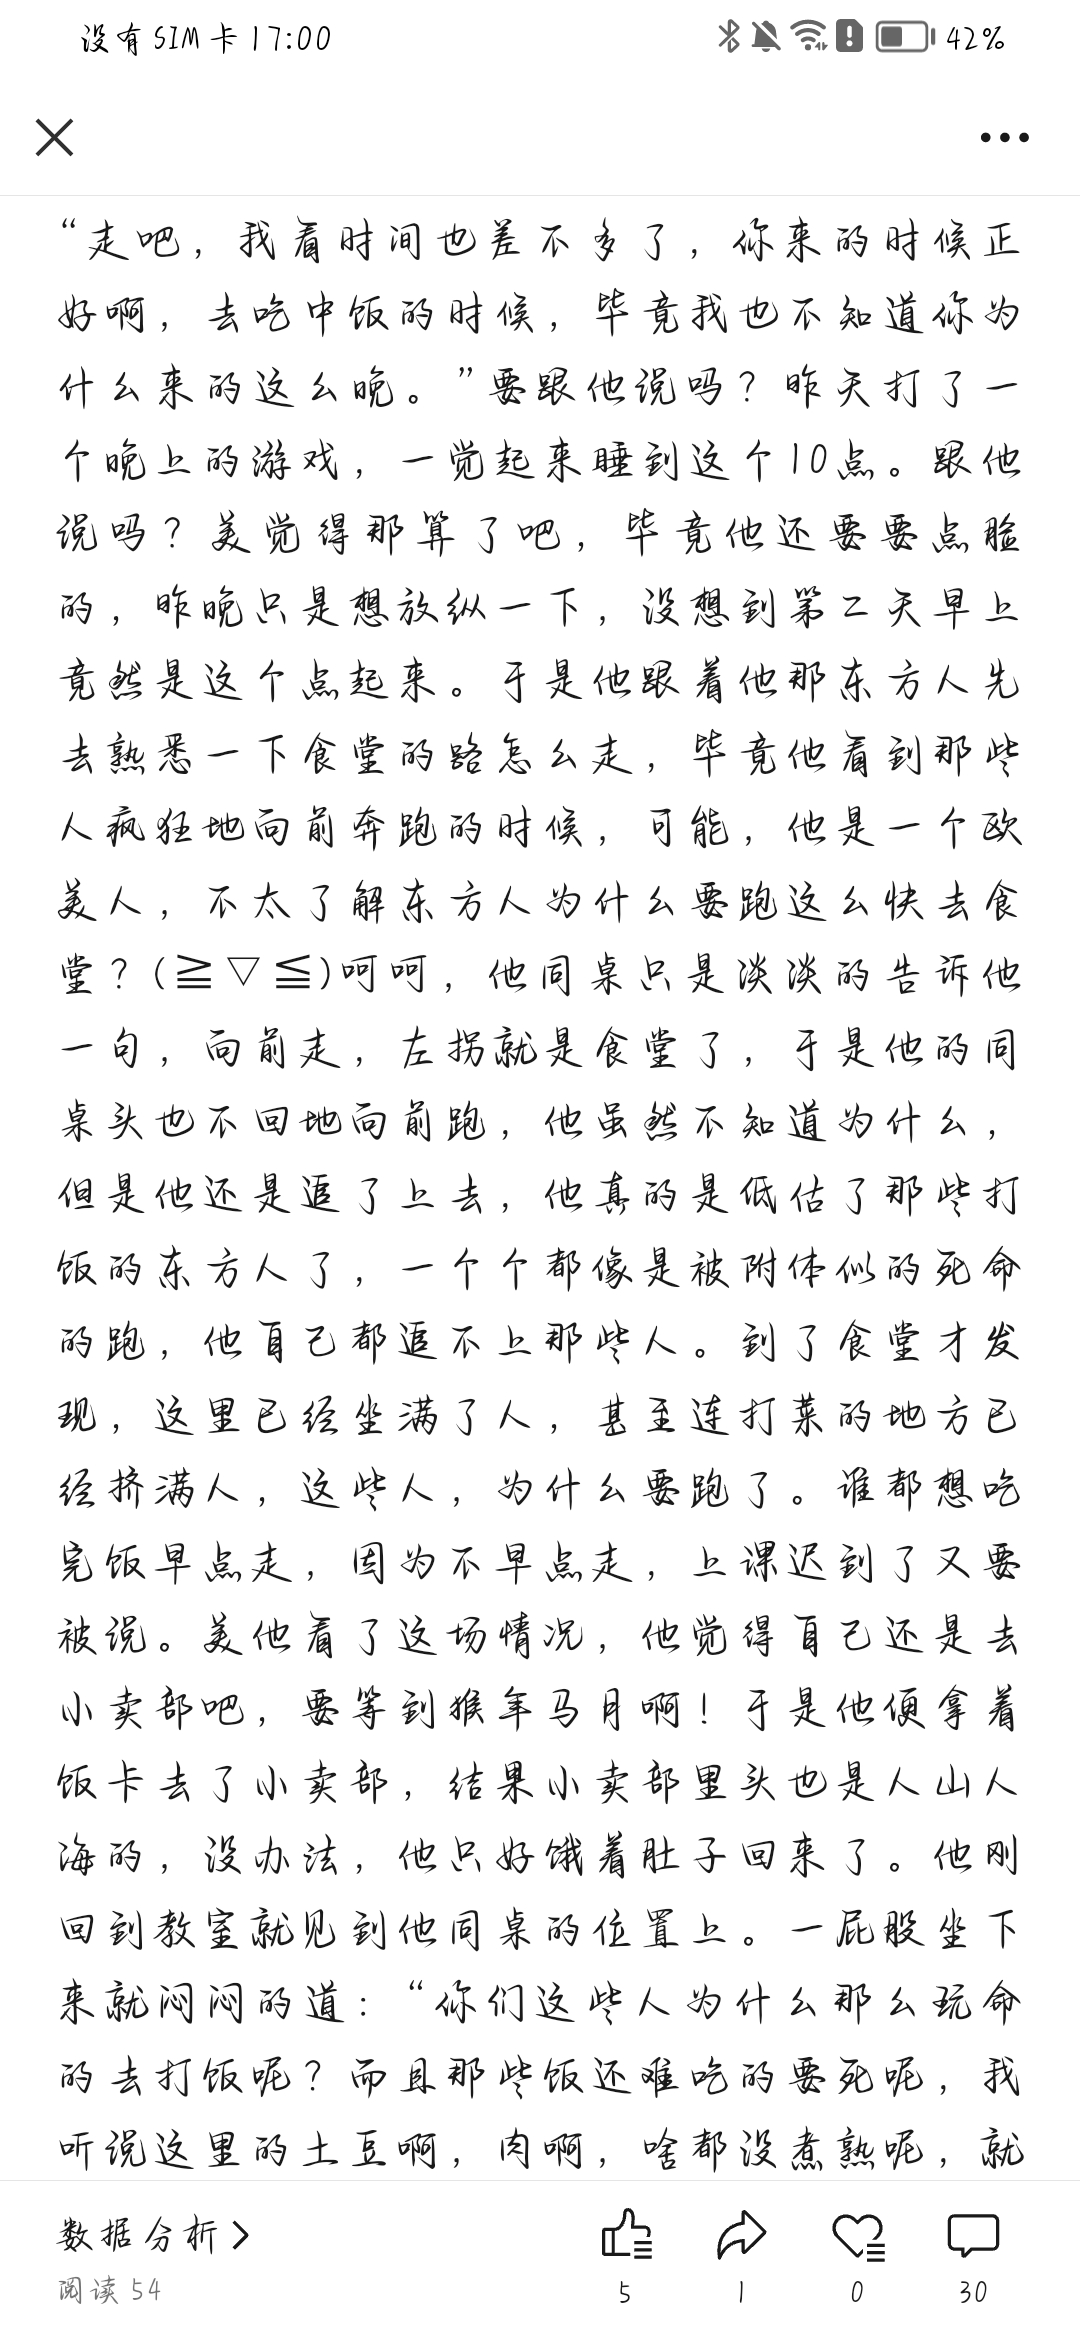 没有SIM卡 17:00
42%
“走吧，我看时间也差不多了，你来的时候正
好啊，去吃中饭的时候，毕竟我也不知道你为
什么来的这么晚。”要跟他说吗？昨天打了一
个晚上的游戏，一觉起来睡到这个10点。跟他
说吗？美觉得那算了吧，毕竟他还要要点脸
的，昨晚只是想放纵一下，没想到第二天早上
竟然是这个点起来。于是他跟着他那东方人先
去熟悉一下食堂的路怎么走，毕竟他看到那些
人疯狂地向前奔跑的时候，可能，他是一个欧
美人，不太了解东方人为什么要跑这么快去食
堂？(≧▽≦)呵呵，他同桌只是淡淡的告诉他
一句，向前走，左拐就是食堂了，于是他的同
桌头也不回地向前跑，他虽然不知道为什么，
但是他还是追了上去，他真的是低估了那些打
饭的东方人了，一个个都像是被附体似的死命
的跑，他自己都追不上那些人。到了食堂才发
现，这里已经坐满了人，甚至连打菜的地方已
经挤满人，这些人，为什么要跑了。谁都想吃
完饭早点走，因为不早点走，上课迟到了又要
被说。美他看了这场情况，他觉得自己还是去
小卖部吧，要等到猴年马月啊！于是他便拿着
饭卡去了小卖部，结果小卖部里头也是人山人
海的，没办法，他只好饿着肚子回来了。他刚
回到教室就见到他同桌的位置上。一屁股坐下
来就闷闷的道：“你们这些人为什么那么玩命
的去打饭呢？而且那些饭还难吃的要死呢，我
听说这里的土豆啊，肉啊，啥都没煮熟呢，就
数据分析
阅读 54
5
1
0
30